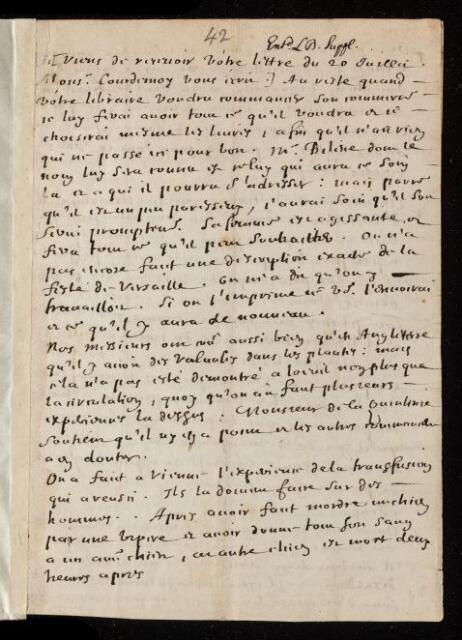 42
Entd. L.B. Suppl.
Je Viens de recevoir vôtre lettre du 20 Juillet.
Monsr. Courdemoy vous écrit :) Au reste quand
vôtre libraire voudra commancer son commerce
je luy ferai avoir tout ce qu'il voudra et je
choisirai mesme les livres, afin qu'il n'ait rien
qui ne passe ici pour bon. Mr. Billine dont le
nom luy sera connu est celuy qui aura ce soin
la et a qui il pourra s'addresser : mais parce
qu'il est un peu paresseux, j'aurai soin qu'il soit
servi promptemt. Sa femme est agissante, et
fera tout ce qu'il peut souhaitter. On n'a
pas encore fait une description exacte de la
feste de Versaille. On m'a dit qu'on y
travailloit. Si on l'imprime je vs. l'envoirai
et ce qu'il y aura de nouveau.
Nos messieurs ont creu aussi bien qu'en Angleterre
qu'il y avoit des valvules dans les plantes : mais
cela n'a pas esté demontré a l'oeuil non plus que
la circulation, quoy qu'on ait fait plusieurs
experiences la dessus : Monsieur de la Quintinie
soutient qu'il n'y en a point et les autres commencent
a en douter.
On a fait a Vienne l'experience de la transfusion
qui a reussi. Ils la doivent faire sur des
hommes. Apres avoir fait mordre un chien
par une vipere et avoir donné tout son sang
a un autre chien, cet autre chien est mort deux
heures apres